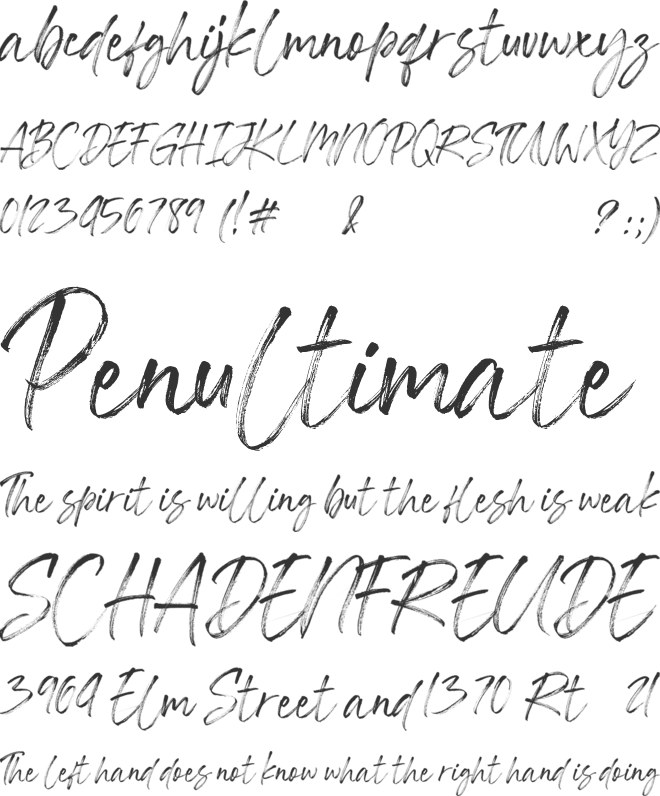 abcdefghijklmnopqrstuvwxyz
ABCDEFGHIJKLMNOPQRSTUVWXYZ
0123456789 (!# & ?:;)
Penultimate
The spirit is willing but the flesh is weak
SCHADENFREUDE
3964 Elm Street and 1370 Rt 21
The left hand does not know what the right hand is doing